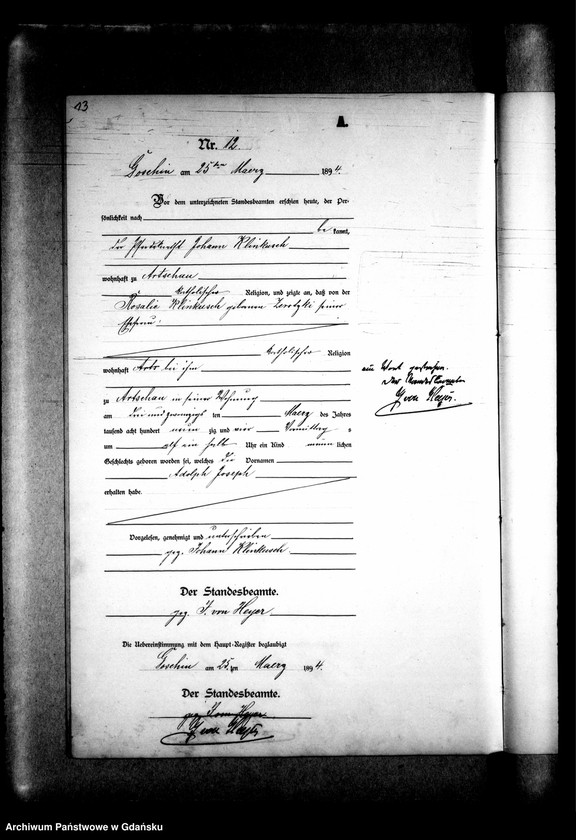 13
A.
Nr. 12.
Goschin am 25ten Maerz 1894.
Vor dem unterzeichneten Standesbeamten erschien heute, der Per-
sönlichkeit nach
be kannt,
der Pferdeknecht Johann Klinkusch
wohnhaft zu Artschau
katholischer Religion, und zeigte an, daß von der
Rosalie Klinkusch geborenen seiner
Ehefrau
katholischer Religion
wohnhaft bei ihm
zu Artschau in seiner Wohnung
am drei und zwanzigs ten Maerz des Jahres
tausend acht hundert neun zig und vier Vormittag s
um elf ein halb Uhr ein Kind männ lichen
Geschlechts geboren worden sei, welches die Vornamen
Adolph Joseph
erhalten habe.
ein Wort gestrichen.
Der Standesbeamte
J von Heyer.
Vorgelesen, genehmigt und unterschrieben
gez. Johann Klinkusch
Der Standesbeamte.
gez. J. von Heyer
Die Uebereinstimmung mit dem Haupt-Register beglaubigt
Goschin am 25. ten Maerz 1894.
Der Standesbeamte.
gez. J. von Heyer
J von Heyer
Archiwum Państwowe w Gdańsku